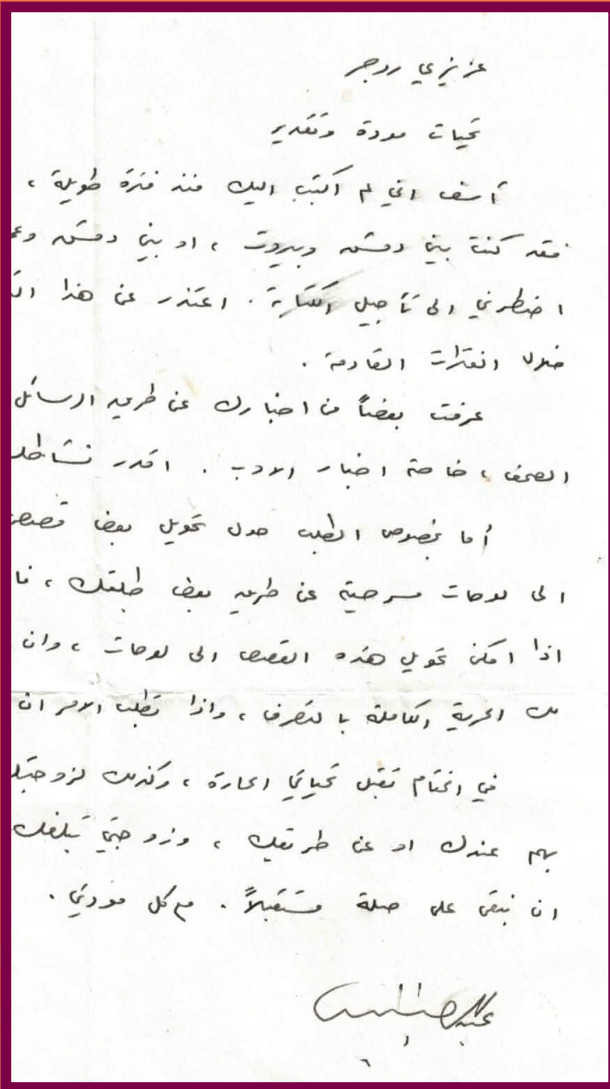 عزيزي روجر
تحيات مودة وتقدير
آسف اني لم اكتب اليك منذ فترة طويلة ،
فقد كنت بين دمشق وبيروت ، او بين دمشق
اضطرني الى تأجيل الكتابة . اعتذر عن هذا
خلال الفترات القادمة .
عرفت بعضاً من اخبارك عن طريق الرسائل
الصحف ، خاصة اخبار الادب . اقدر
أما بخصوص الطلب حول تحويل بعض
الى لوحات مسرحية عن طريق بعض طلبتك ،
اذا امكن تحويل هذه القصص الى لوحات ، وان
لك الحرية الكاملة بالتصرف ، واذا تطلب الامر ان
في الختام تقبل تحياتي الحارة ، وكذلك
بهم عندك او عن طريقك ، وزوجتي تبلغك
ان نبقى على صلة مستقبلاً . مع كل مودتي .